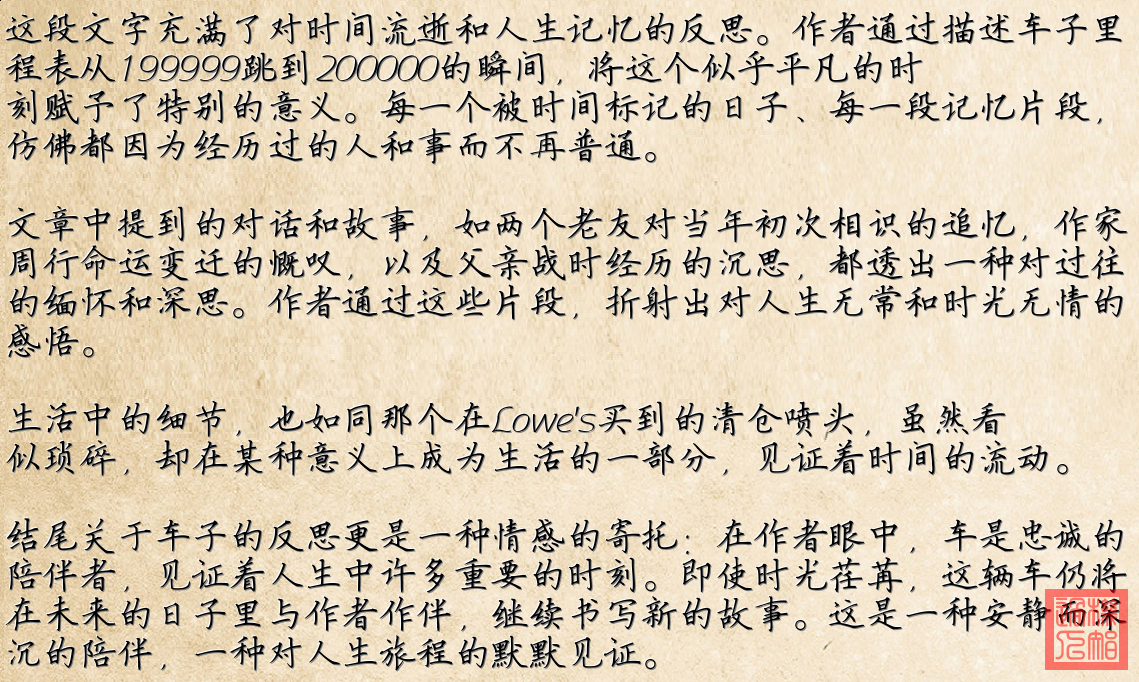 这段文字充满了对时间流逝和人生记忆的反思。作者通过描述车子里
程表从199999跳到200000的瞬间，将这个似乎平凡的时
刻赋予了特别的意义。每一个被时间标记的日子、每一段记忆片段，
仿佛都因为经历过的人和事而不再普通。
文章中提到的对话和故事，如两个老友对当年初次相识的追忆，作家
周行命运变迁的慨叹，以及父亲战时经历的沉思，都透出一种对过往
的缅怀和深思。作者通过这些片段，折射出对人生无常和时光无情的
感悟。
生活中的细节，也如同那个在Lowe's买到的清仓喷头，虽然看
似琐碎，却在某种意义上成为生活的一部分，见证着时间的流动。
结尾关于车子的反思更是一种情感的寄托：在作者眼中，车是忠诚的
陪伴者，见证着人生中许多重要的时刻。即使时光荏苒，这辆车仍将
在未来的日子里与作者作伴，继续书写新的故事。这是一种安静而深
沉的陪伴，一种对人生旅程的默默见证。